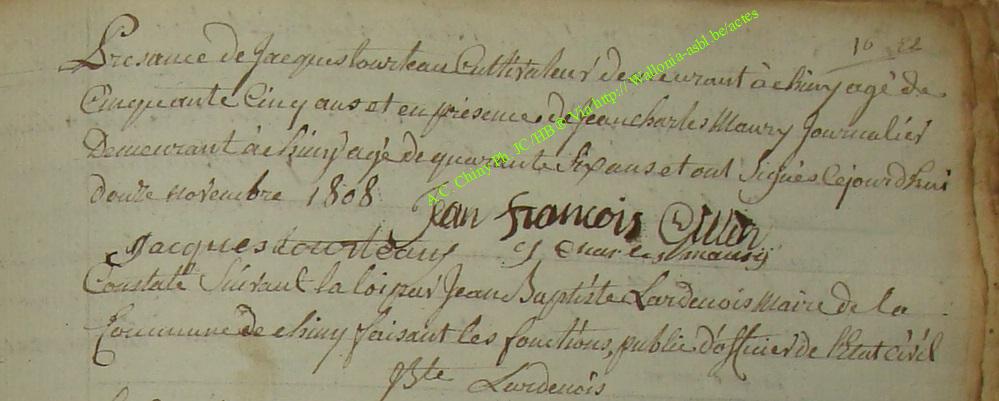 10 22
Presance de Jacques tourteau Cultivateur demeurant à chiny agé de
Cinquante Cinq ans et en présence de Jean charles Maury Journalier
Demeurant à chiny agé de quarante Six ans et ont Signés Cejourd'hui
douze novembre 1808
Jean francois Gillin
Jacques tourteau J charles maury
Constaté Suivant la loi par Jean Baptiste Lardenois Maire de la
Commune de chiny faisant les fonctions public d'officier de l'Etat Civil
JBte Lardenois
A.C. Chiny Ph. JC HB @ Via http://Wallonia-asbl.be/actes